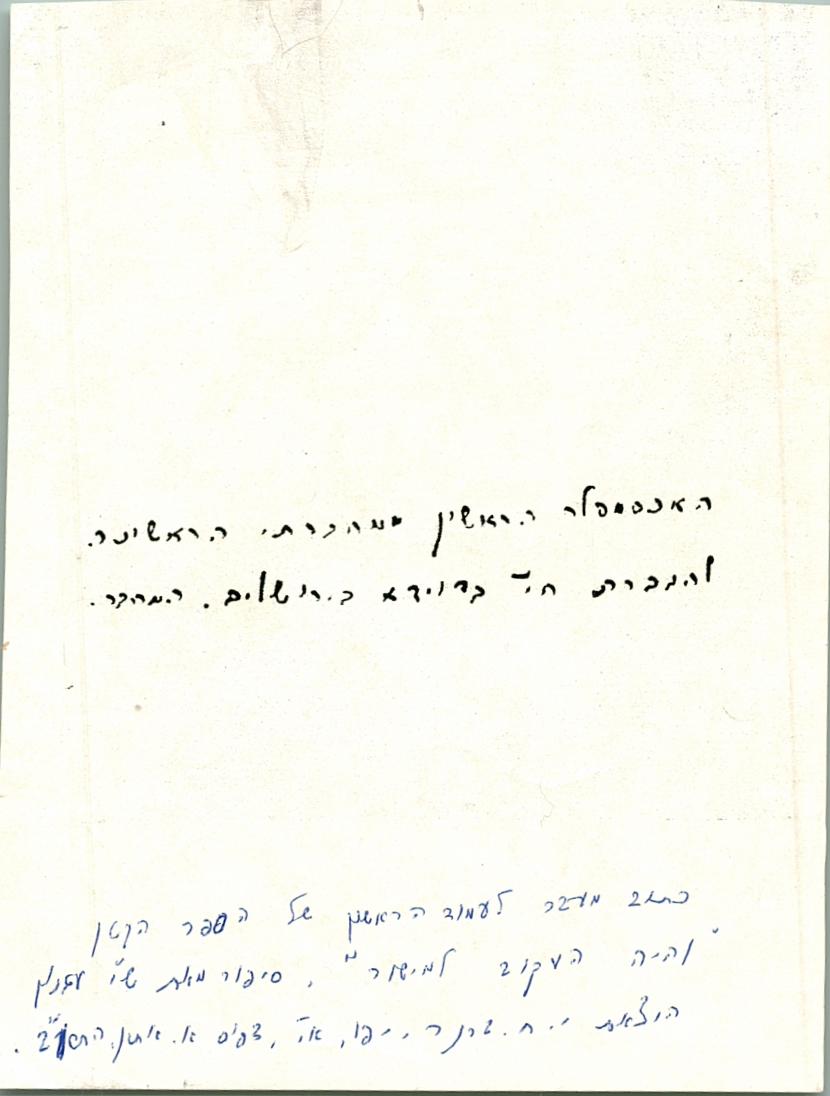 האכסמפלר הראשון ממחברתי הראשונה.
להגברת חי׳ בדוידא בירושלים. המחבר.
כתוב מעבר לעמוד הראשון של הספר הקטן
"והיה העקוב למישור", סיפור מאת ש"י עגנון
הוצאת י. ח. ברנר, יפו, א"י, דפוס א. איתן, התרע"ב.